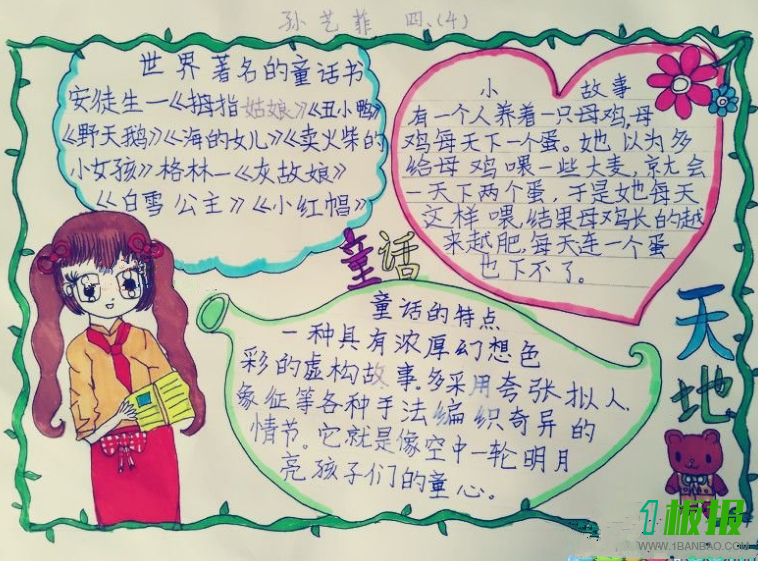 孙艺菲 四、(4)
世界著名的童话书
安徒生一《拇指姑娘》《丑小鸭》
《野天鹅》《海的女儿》《卖火柴的
小女孩》格林一《灰故娘》
《白雪公主》《小红帽》
小 故事
有一个人养着一只母鸡,母
鸡每天下一个蛋。她以为多
给母鸡喂一些大麦,就会
一天下两个蛋,于是她每天
这样喂,结果母鸡长的越
来越肥,每天连一个蛋
也下不了。
童话
天地
童话的特点
一种具有浓厚幻想色
彩的虚构故事.多采用夸张拟人、
象征等各种手法编织奇异的
情节。它就是像空中一轮明月
亮孩子们的童心。
1板报
WWW.1BANBAO.COM